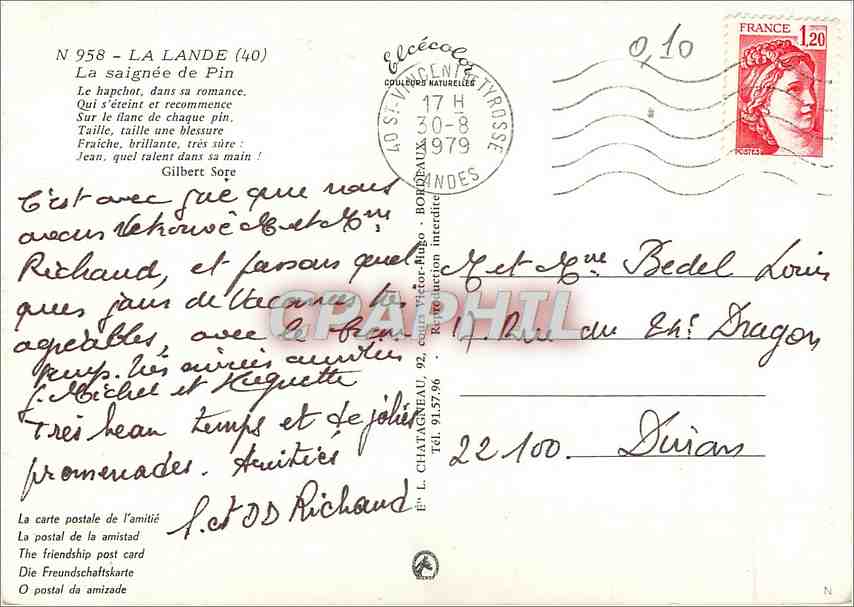 N 958 - LA LANDE (40)
La saignée de Pin
Le hapchot, dans sa romance,
Qui s'éteint et recommence
Sur le flanc de chaque pin,
Taille, taille une blessure
Fraîche, brillante, très sûre :
Jean, quel talent dans sa main !
Gilbert Sore
C'est avec joie que nous
avons retrouvé M et Mme
Richaud, et passons quel
ques jours de vacances très
agréables, avec le beau
temps. très amitiés
J. Michel et Huguette
Très beau temps et de jolies
promenades. Amitiés
J. et DD Richaud
La carte postale de l'amitié
La postal de la amistad
The friendship post card
Die Freundschaftskarte
O postal da amizade
Elcécolor
COULEURS NATURELLES
40 ST-VINCENT-DE-TYROSSE
17 H
30-8
1979
LANDES
Éts L. CHATAGNEAU, 92, cours Victor-Hugo - BORDEAUX
Tél. 91.57.96 - Reproduction interdite
CPAPHIL
0,10
FRANCE
1,20
POSTES
M et Mme Bedel Louis
17. Rue du Chr Dragon
22100. Dinan
N